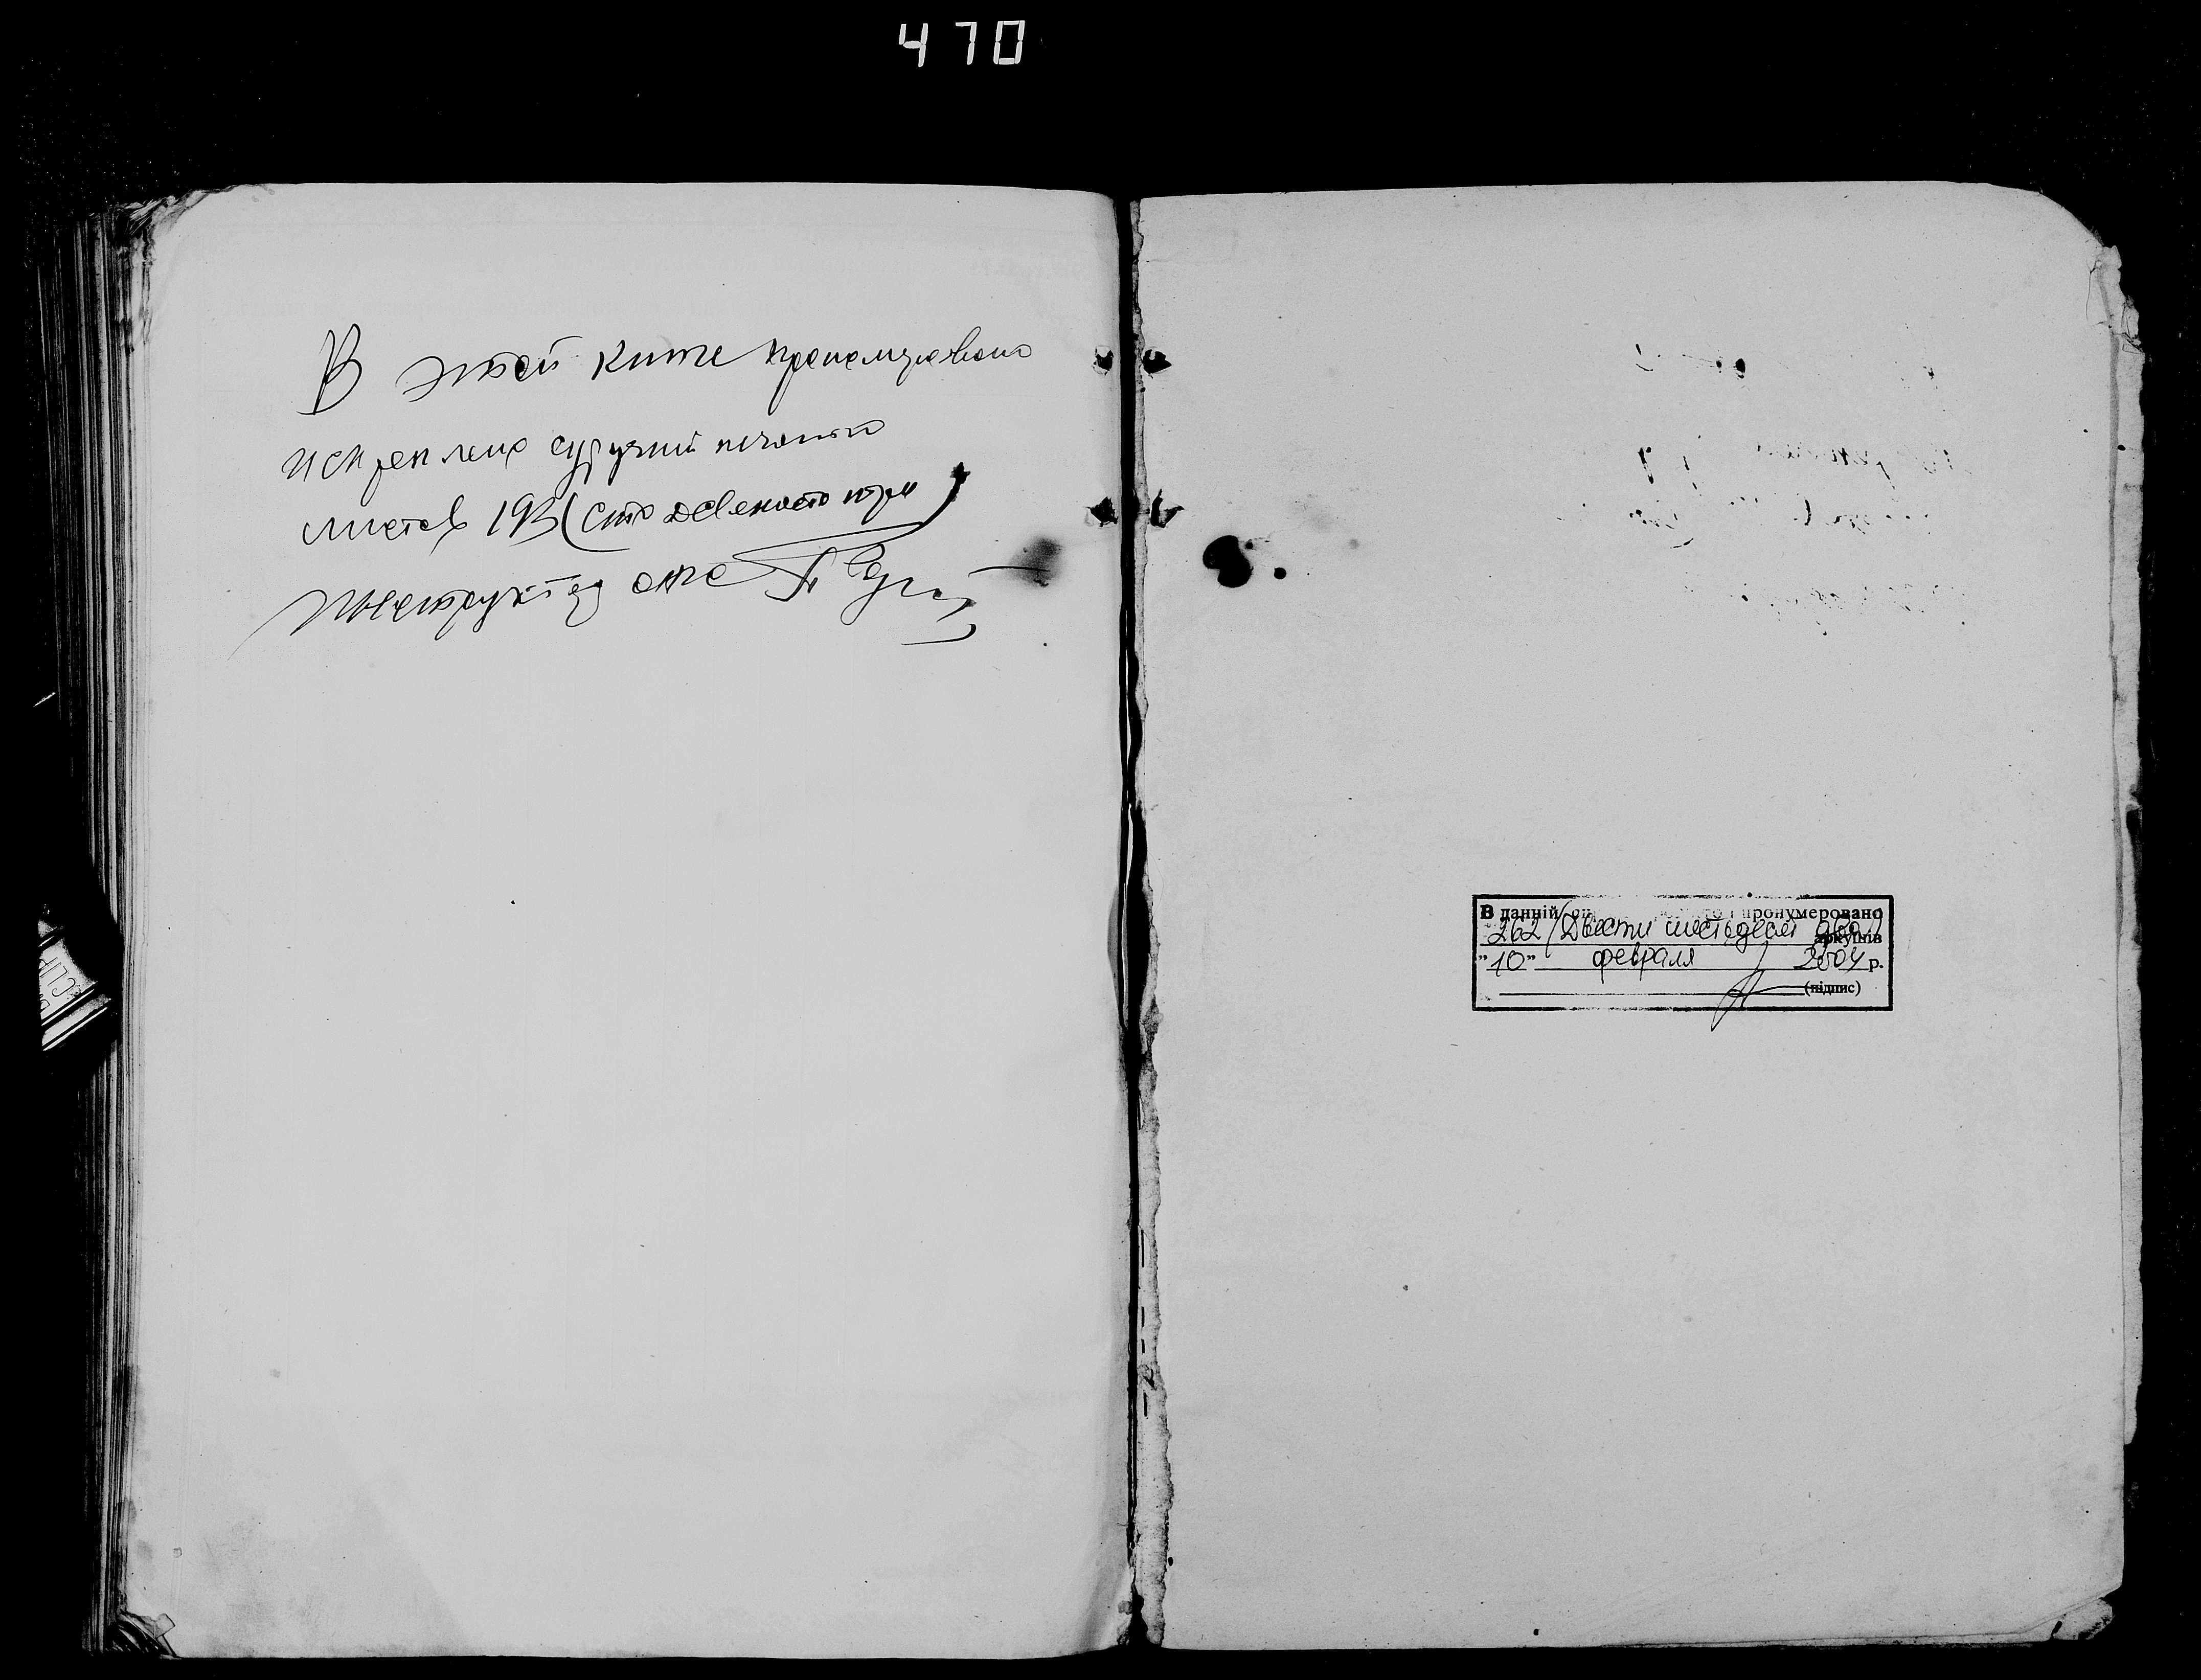 470
В этой книге пронумеровано
и скреплено сургучной печатью
листов 193 (сто девяносто три)
Инструктор
В данній пронумеровано
262 (Двести шестьдесят два) аркушів
"10" февраля 2004 р.
(підпис)